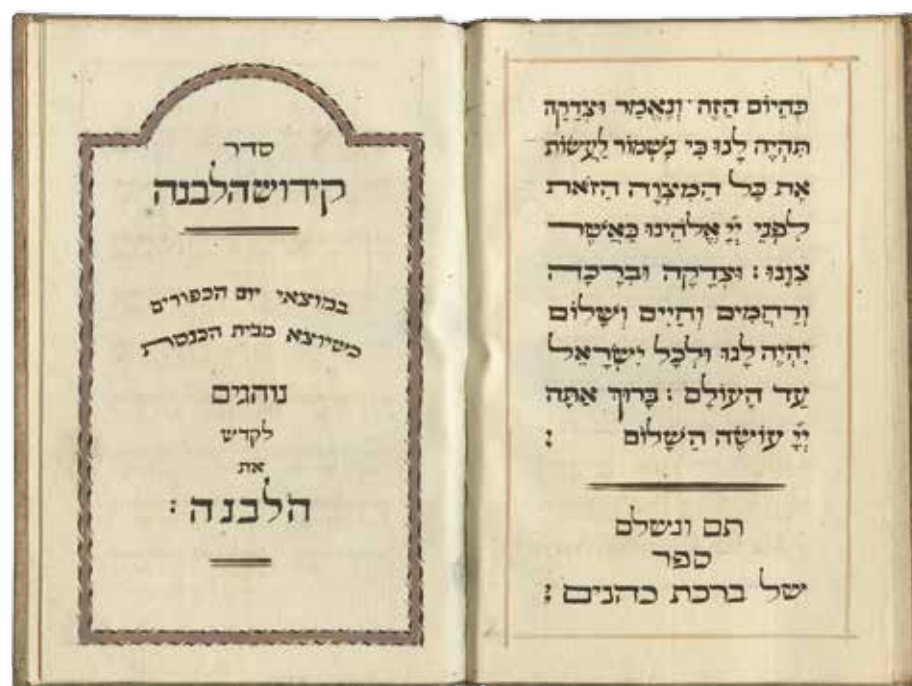 כְּהַיוֹם הַזֶּה וְנֶאֱמַר וּצְדָקָה
תִּהְיֶה לָנוּ כִּי נִשְׁמוֹר לַעֲשׂוֹת
אֶת כָּל הַמִּצְוָה הַזֹּאת
לִפְנֵי יְיָ אֱלֹהֵינוּ כַּאֲשֶׁר
צִוָּנוּ : וּצְדָקָה וּבְרָכָה
וְרַחֲמִים וְחַיִּים וְשָׁלוֹם
יִהְיֶה לָנוּ וּלְכָל יִשְׂרָאֵל
עַד הָעוֹלָם : בָּרוּךְ אַתָּה
יְיָ עוֹשֶׂה הַשָּׁלוֹם :
תם ונשלם
ספר
של ברכת כהנים :
סדר
קידוש הלבנה
במוצאי יום הכפורים
כשיוצא מבית הכנסת
נוהגים
לקדש
את
הלבנה :